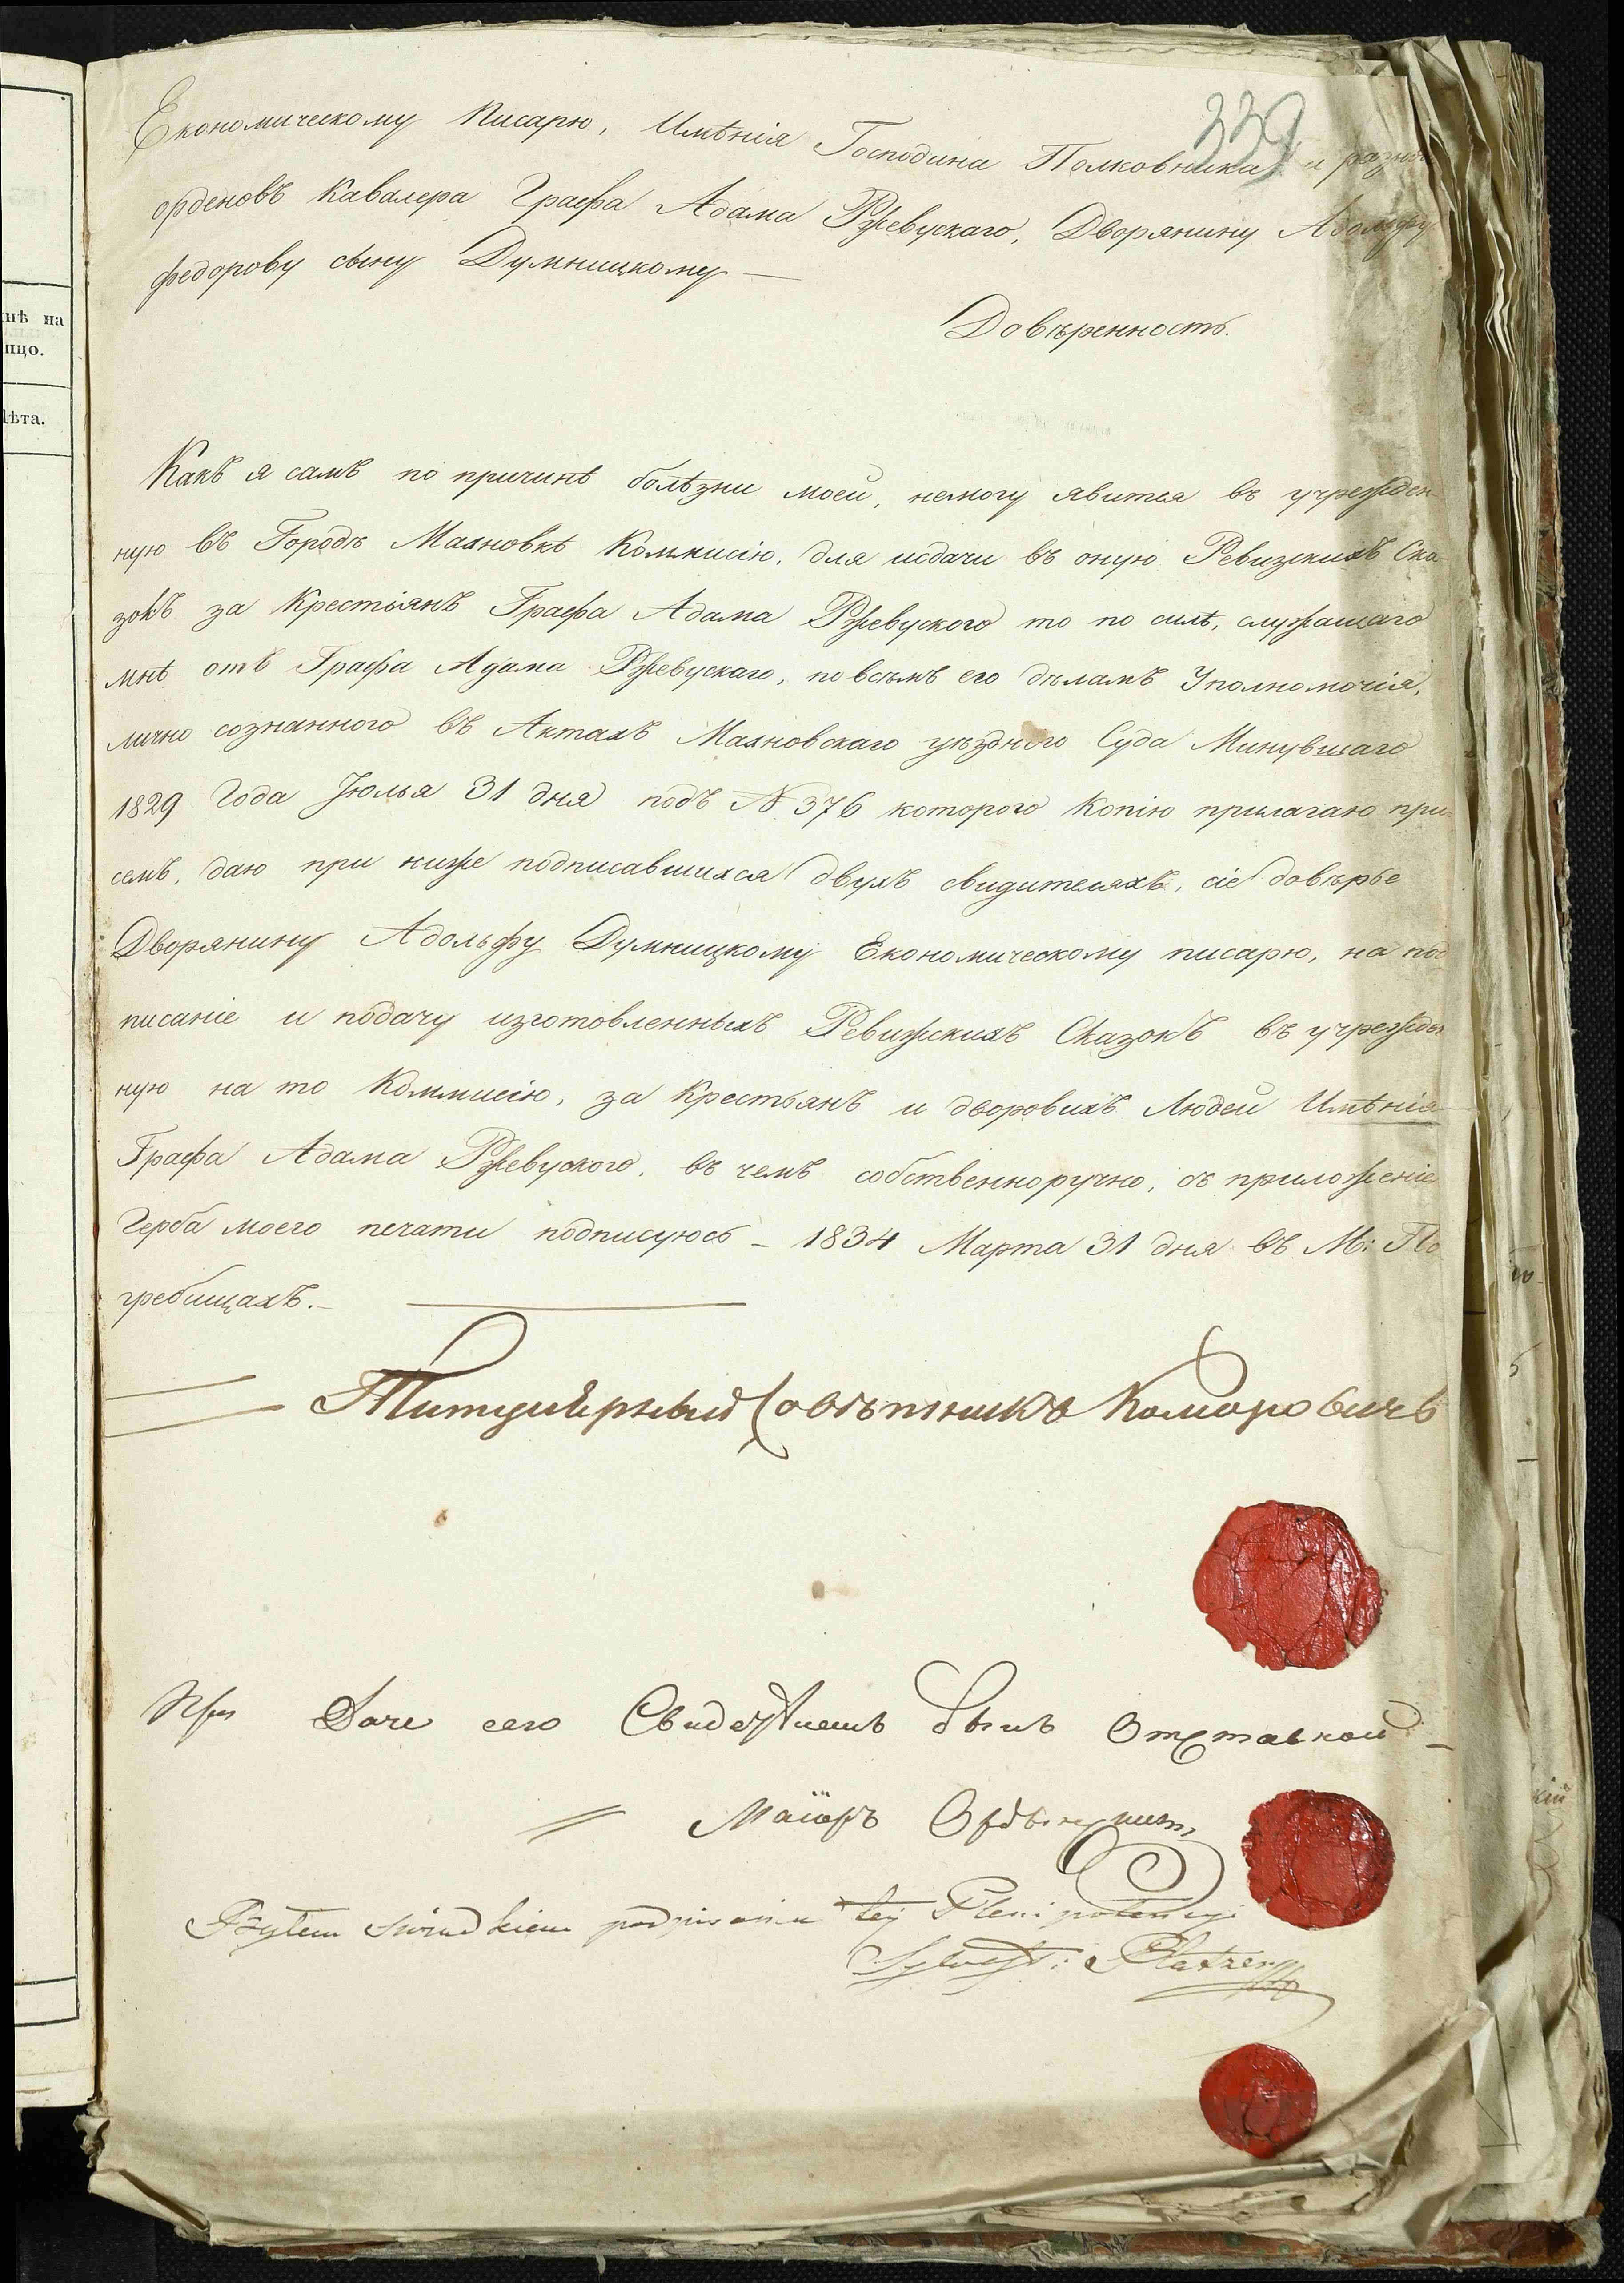 339
Економическому Писарю, Имѣнія Господина Полковника и разн
орденовъ Кавалера Графа Адама Ржевускаго, Дворянину Адольфу
федорову сыну Думницкому —
Довѣренность.
Какъ я самъ по причинѣ болѣзни моей, немогу явится въ учрежден
ную въ Городѣ Махновкѣ Коммисію, для подачи въ оную Ревизскихъ Ска-
зокъ за Крестіянъ Графа Адама Ржевуского то по силѣ, служащаго
мнѣ отъ Графа Адама Ржевускаго, по всѣмъ его дѣламъ Уполномочія,
лично сознанного въ Актахъ Махновскаго уѣздного Суда Минувшаго
1829 Года Іюлья 31 дня подъ N 376 которого Копію прилагаю при
семъ, даю при ниже подписавшихся двухъ свидителяхъ, сіе довѣрье
Дворянину Адольфу Думницкому Економическому писарю, на под
писаніе и подачу изготовленныхъ Ревижскихъ Сказокъ въ учрежден
ную на то Коммисію, за Крестьянъ и дворовихъ Людей Имѣнія
Графа Адама Ржевуского, въ чемъ собственноручно, съ приложеніе
Герба моего печати подписуюсь – 1834 Марта 31 дня въ М: По
гребищахъ.–
Титулярный Совѣтникъ Комаровичъ
При Даче сего Свидетелемъ былъ Отставной –
Маіоръ
Byłem świadkiem podpisania tej Plenipotencyi
Sylwest:
нѣ на
ицо.
Лѣта.
кій